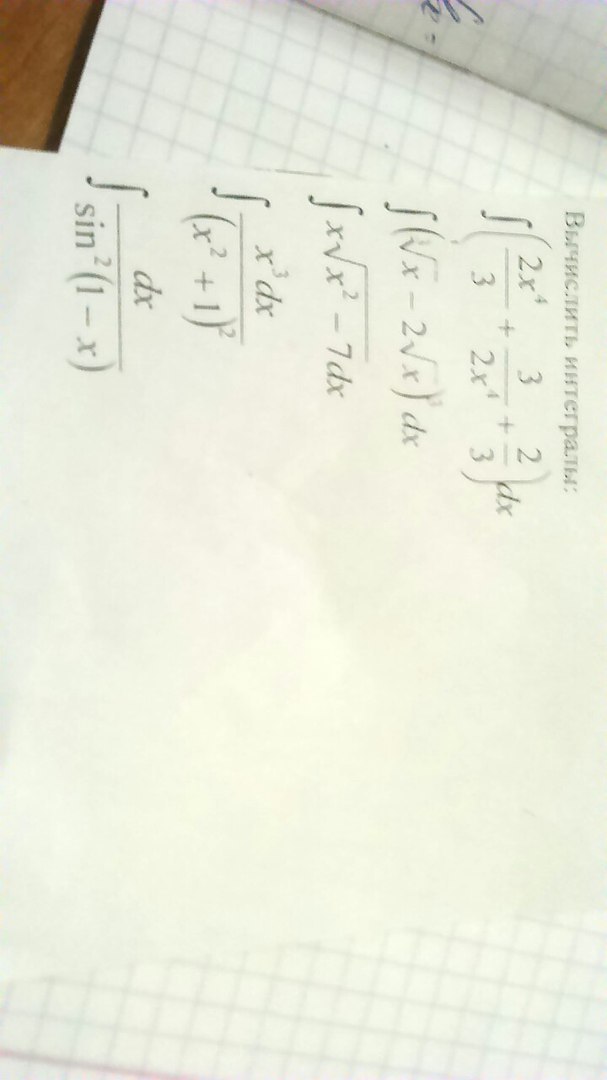 Вычислить интегралы:
∫(2x⁴/3 + 3/2x⁴ + 2/3)dx
∫(∛x − 2√x)³ dx
∫x√(x² − 7)dx
∫ x³dx/(x² + 1)²
∫ dx/sin²(1 − x)